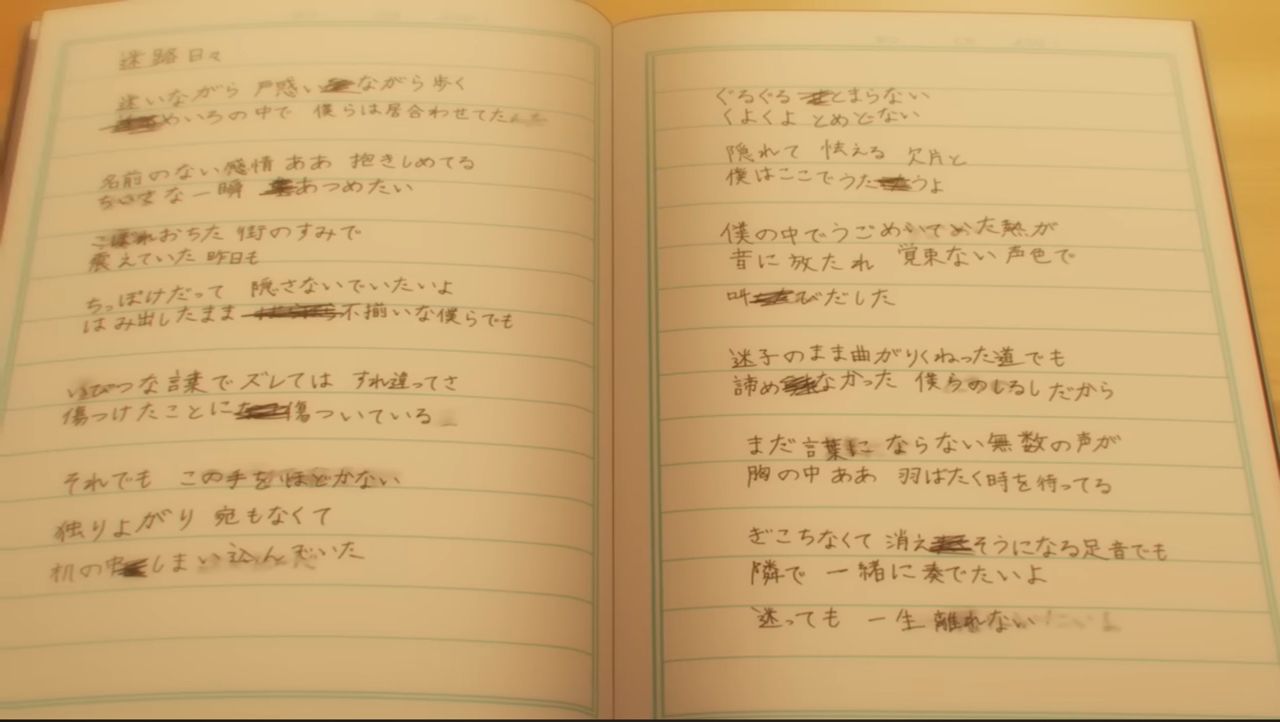 迷路日々
迷いながら 戸惑いながら歩く
めいろの中で 僕らは居合わせてた
名前のない感情 ああ 抱きしめてる
ちいさな一瞬 あつめたい
こぼれおちた 街のすみで
震えていた 昨日も
ちっぽけだって 隠さないでいたいよ
はみ出したまま 不揃いな僕らでも
いびつな言葉で ズレては すれ違ってさ
傷つけたことに 傷ついている
それでも この手をほどかない
独りよがり 宛もなくて
机の中 しまい込んでいた
ぐるぐる とまらない
くよくよ とめどない
隠れて 怯える 欠片と
僕はここでうたうよ
僕の中でうごめいてめた熱が
音に放たれ 覚束ない声色で
叫びだした
迷子のまま曲がりくねった道でも
諦めなかった 僕らのしるしだから
まだ言葉に ならない無数の声が
胸の中 ああ 羽ばたく時を待ってる
ぎこちなくて 消えそうになる足音でも
隣で 一緒に奏でたいよ
迷っても 一生 離れない